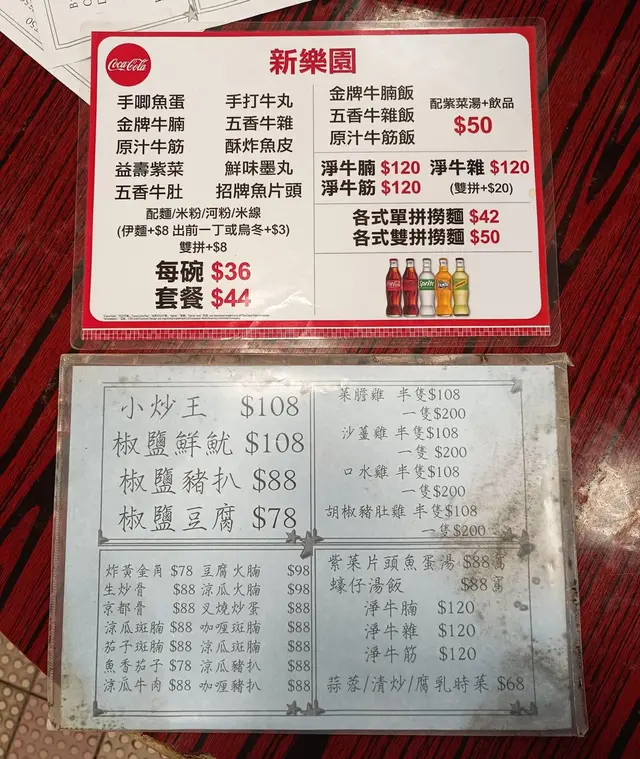 Coca-Cola
新樂園
手唧魚蛋 手打牛丸
金牌牛腩 五香牛雜
原汁牛筋 酥炸魚皮
益壽紫菜 鮮味墨丸
五香牛肚 招牌魚片頭
配麵/米粉/河粉/米線
(伊麵+$8 出前一丁或烏冬+$3)
雙拼+$8
每碗 $36
套餐 $44
金牌牛腩飯
五香牛雜飯
原汁牛筋飯
配紫菜湯+飲品
$50
淨牛腩 $120 淨牛雜 $120
淨牛筋 $120 (雙拼+$20)
各式單拼撈麵 $42
各式雙拼撈麵 $50
小炒王 $108
椒鹽鮮魷 $108
椒鹽豬扒 $88
椒鹽豆腐 $78
菜膽雞 半隻$108
一隻$200
沙薑雞 半隻$108
一隻 $200
口水雞 半隻$108
一隻$200
胡椒豬肚雞 半隻$108
一隻$200
炸黃金角 $78 豆腐火腩 $98
生炒骨 $88 涼瓜火腩 $98
京都骨 $88 叉燒炒蛋 $88
涼瓜斑腩 $88 咖喱斑腩 $88
茄子斑腩 $88 涼瓜斑腩 $88
魚香茄子 $78 涼瓜豬扒 $88
涼瓜牛肉 $88 咖喱豬扒 $88
紫菜片頭魚蛋湯 $88窩
蠔仔湯飯 $88窩
淨牛腩 $120
淨牛雜 $120
淨牛筋 $120
蒜蓉/清炒/腐乳時菜 $68